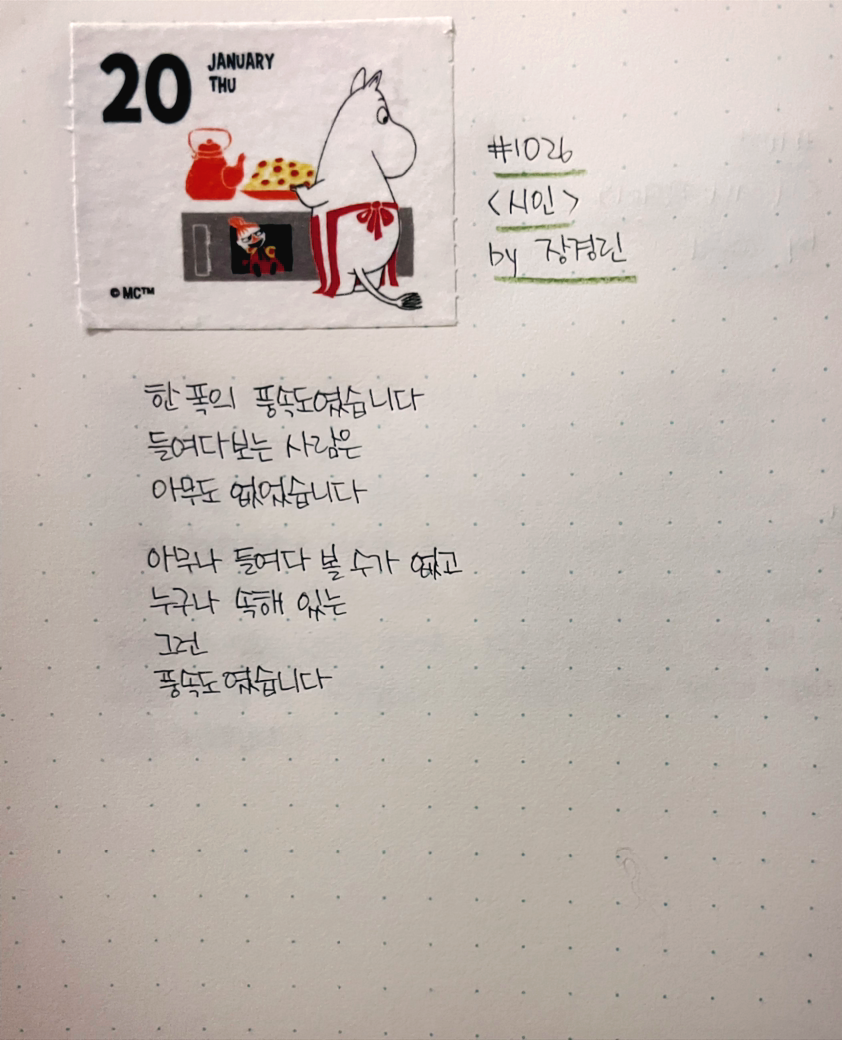 20
JANUARY
THU
© MC™
#1026
<시인>
by 장경린
한 폭의 풍속도였습니다
들여다보는 사람은
아무도 없었습니다
아무나 들여다 볼 수가 없고
누구나 속해 있는
그런
풍속도였습니다